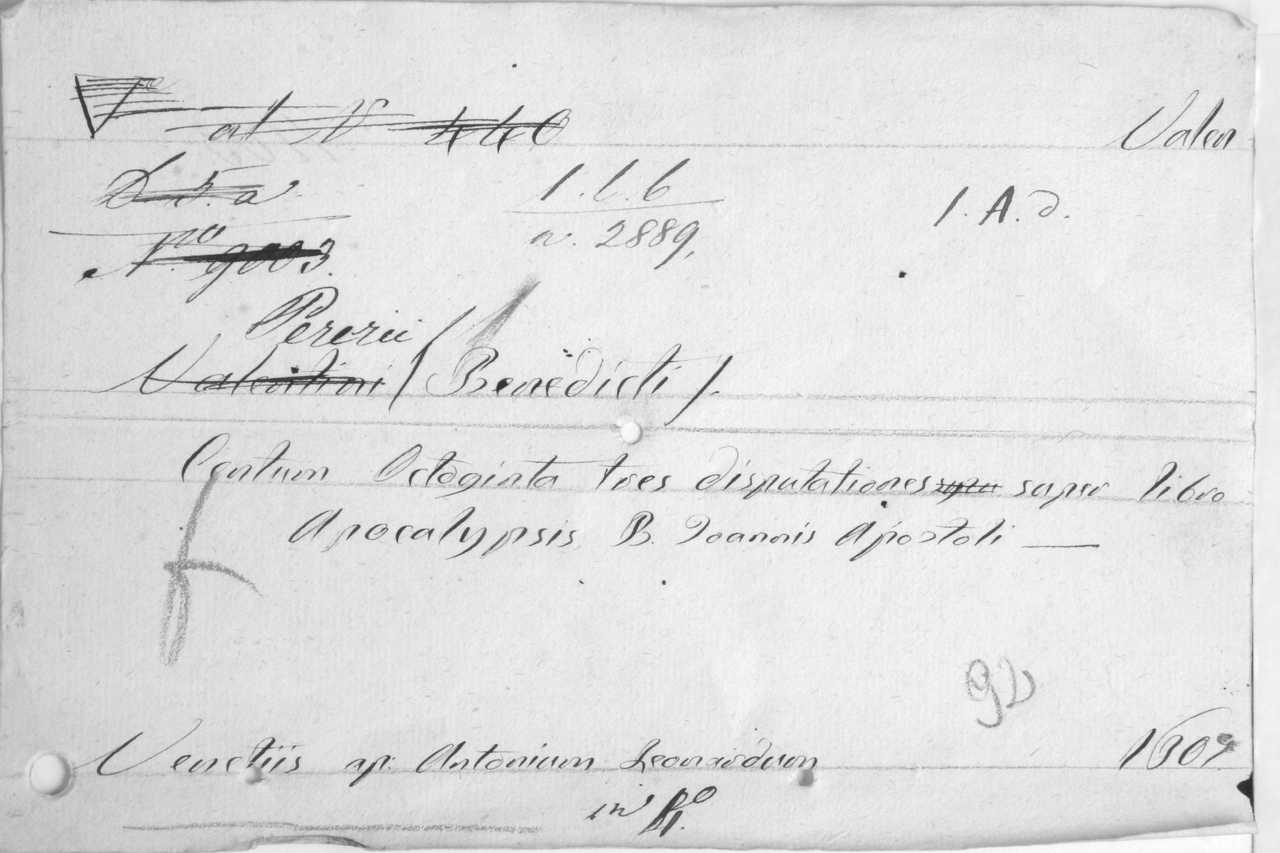 al N 440
Valen
D. 5. a
1. b. 6
1. A. d.
a. 2889,
No. 9003.
Pererii
Valentini (Benedicti).
Centum Octoginta tres disputationes super libro
Apocalypsis B. Joannis Apostoli —
92
Venetiis ap. Antonium Leonardum 1607
in fo.